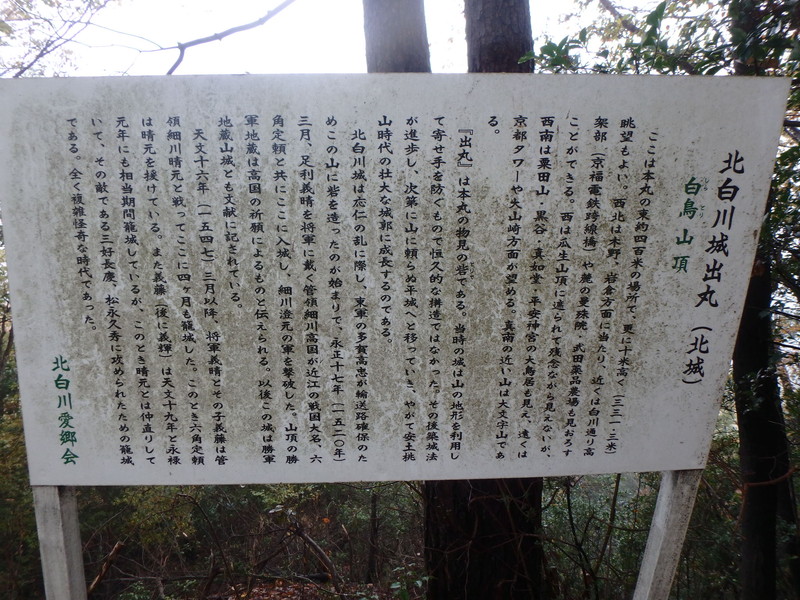 北白川城出丸（北城）
しらとり
白鳥山頂
ここは本丸の東約四百米の場所で、更に十米高く（三三一・三米）
眺望もよい。西北は木野・岩倉方面に当たり、近くは白川通り高
架部（京福電鉄跨線橋）や麓の曼殊院、武田薬品農場も見おろす
ことができる。西は瓜生山頂に遮られて残念ながら見えないが、
西南は粟田山・黒谷・真如堂・平安神宮の大鳥居も見え、遠くは
京都タワーや大山崎方面が望める。真南の近い山は大文字山であ
る。
『出丸』は本丸の物見の砦である。当時の城は山の地形を利用し
て寄せ手を防ぐもので恒久的な構造ではなかった。その後築城法
が進歩し、次第に山に頼らぬ平城へと移っていき、やがて安土桃
山時代の壮大な城郭に成長するのである。
北白川城は応仁の乱に際し、東軍の多賀高忠が輸送路確保のた
めこの山に砦を造ったのが始まりで、永正十七年（一五二〇年）
三月、足利義晴を将軍に戴く管領細川高国が近江の戦国大名、六
角定頼と共にここに入城し、細川澄元の軍を撃破した。山頂の勝
軍地蔵は高国の祈願によるものと伝えられる。以後この城は勝軍
地蔵山城とも文献に記されている。
天文十六年（一五四七）三月以降、将軍義晴とその子義藤は管
領細川晴元と戦ってここに四ヶ月も籠城した。このとき六角定頼
は晴元を援けている。また義藤（後に義輝）は天文十九年と永禄
元年にも相当期間籠城しているが、このとき晴元とは仲直りして
いて、その敵である三好長慶、松永久秀に攻められたための籠城
である。全く複雑怪奇な時代であった。
北白川愛郷会